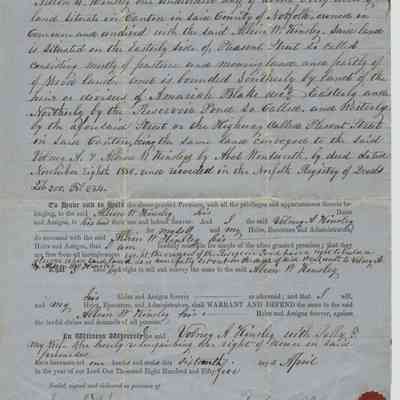 land situate in Canton in said County of Norfolk, owned in
Common and undivid with the said Alvin W. Kinsley Said land
is Situated on the Easterly side of Pleasant Street So called
consisting mostly of pasture and mowing land and partly of
Wood land is bounded Southerly by land of the
heirs or devisees of Amariah Blake Easterly and
Northerly by the Reservoir Pond So Called, and Westerly
by the aforesaid Street or the Highway called Pleasant Street
in said Canton, being the same land conveyed to the said
A. & Alvin W. Kinsley by Abel Wentworth, by deed dated
November eighth and recorded in the Norfolk Registry of Deeds
Lib 200.
To Have and to Hold the above-granted Premises, with all the privileges and appurtenances thereto be-
longing, to the said Alvin W. Kinsley his Heirs
and Assigns, to his and their use and behoof forever. And I the said A. Kinsley
for myself and my Heirs, Executors and Administrators
do covenant with the said Alvin W. Kinsley his
Heirs and Assigns, that I am lawfully seized in fee simple of the afore granted premises; that they
are free from all incumbrances
right to sell and convey the same to the said Alvin W. Kinsley
his Heirs and Assigns forever as aforesaid; and that I will,
and my Heirs, Executors, and Administrators, shall WARRANT AND DEFEND the same to the said
Alvin W. Kinsley his Heirs and Assigns forever, against
the lawful claims and demands of all persons.
In Witness Whereof, I the said A. Kinsley with Sally
my Wife She hereby relinquishing the right of dower in said
premises
have hereunto set our hands and seals this Sixteenth day of April
in the year of our Lord One Thousand Eight Hundred and Fifty five
Sealed, signed and delivered in presence of